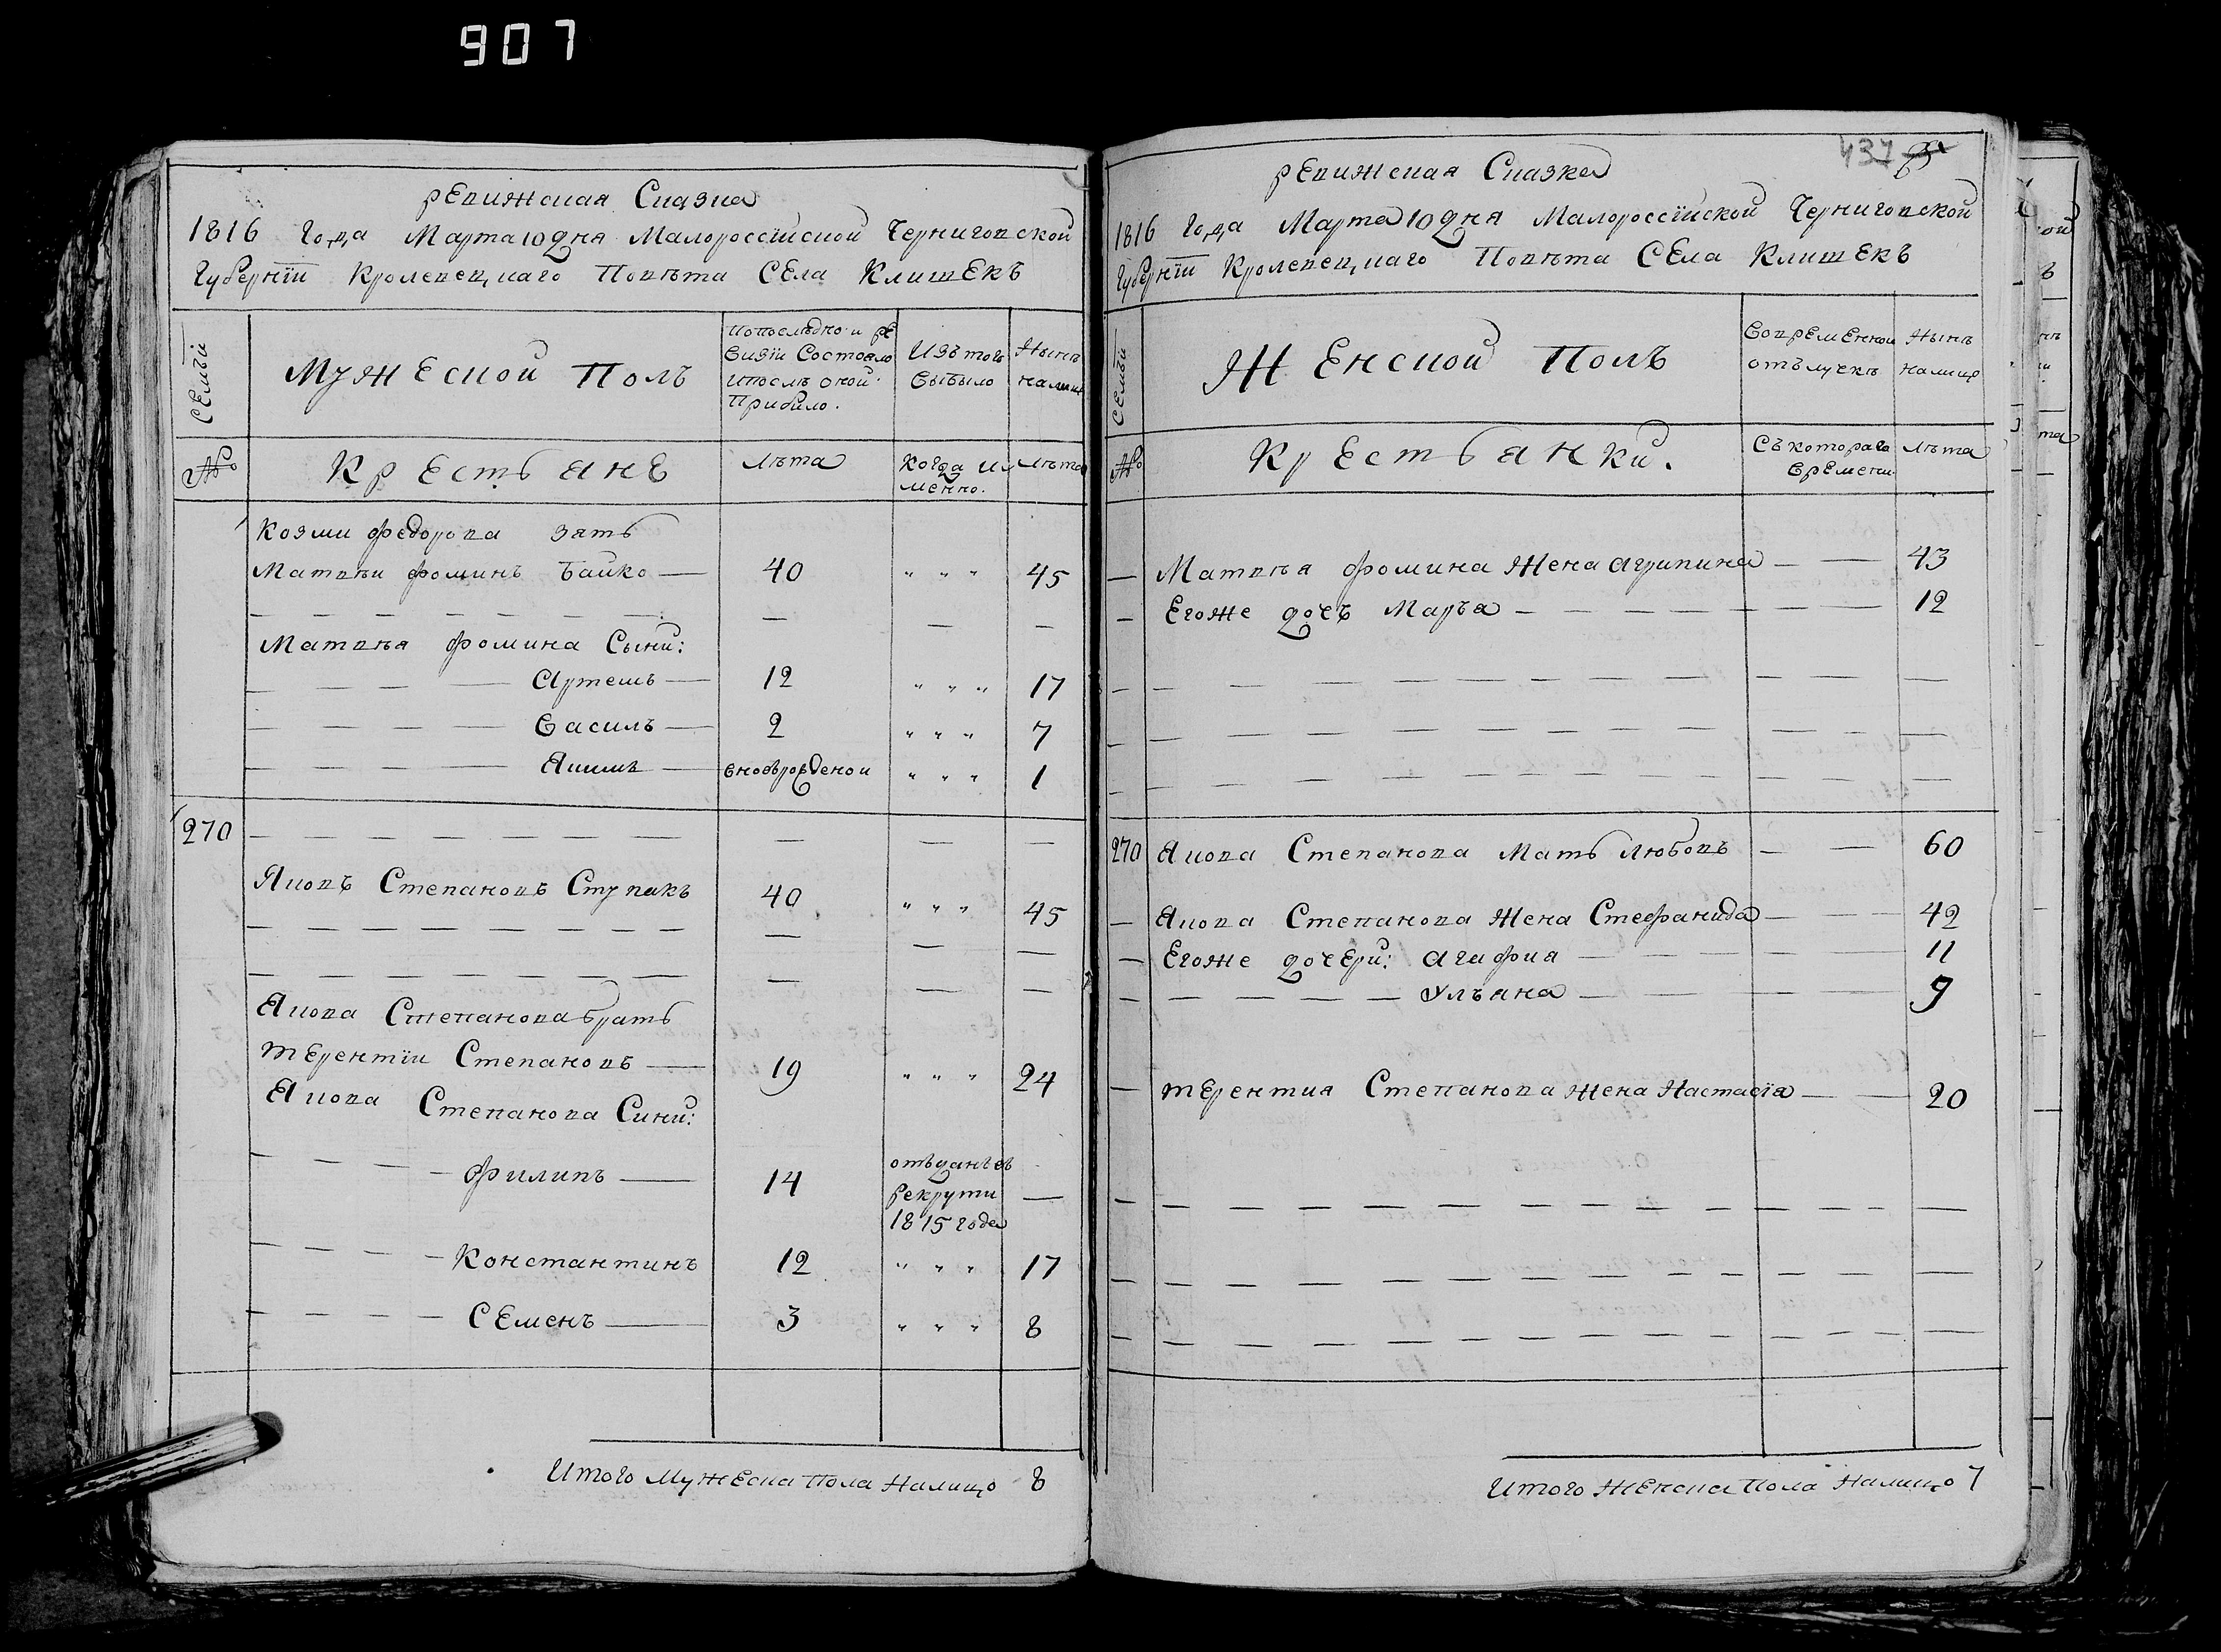 907
Ревижская Сказка
1816 Года Марта 10 дня Малороссійской Черниговской
Губерніи Кролевецкаго Повѣта Села Клишекъ
Семьи
Мужеской Полъ
Попослѣдной ре
визіи Состояло
ипослѣ оной
Прибило.
Изъ того
Выбыло
Нынѣ
налицо
№
Крестьяне
Лѣта
Когда и
менно.
Лѣта
Козми Федорова зять
Матвѣи Фоминъ Байко — 40 " " " 45
Матвѣя Фомина Сыни:
Артемъ — 12 " " " 17
Василъ — 2 " " " 7
Якимъ — вновърожденои " " " 1
270
Яковъ Степановъ Ступакъ 40 " " " 45
Якова Степанова братъ
Терентіи Степановъ — 19 " " " 24
Якова Степанова Сини:
Филипъ — 14 отъданъ въ
рекрути —
1815 года
Константинъ 12 " " " 17
Семенъ — 3 " " " 8
Итого Мужеска Пола Налицо 8
437
Ревижская Сказка
1816 Года Марта 10 дня Малороссійской Черниговской
Губерніи Кролевецкаго Повѣта Села Клишекъ
Семьи
Женской Полъ
Вопременной
отълучкѣ
Нынѣ
налицо
№
Крестьянки.
Съкотораго
времени
Лѣта
— Матвѣя Фомина Жена Агрипина — — 43
— Егоже дочъ Марья — — 12
270 Якова Степанова Мать Любовъ — — 60
— Якова Степанова Жена Стефанида — — 42
— Егоже дочери: Агафия — — 11
— Ульяна — — 9
— Терентия Степанова Жена Настасія — — 20
Итого Женска Пола Налицо 7